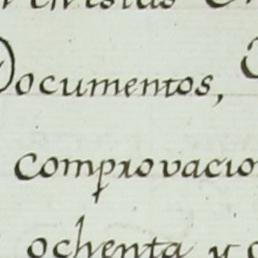 Documentos,
comprovacio
ochenta y